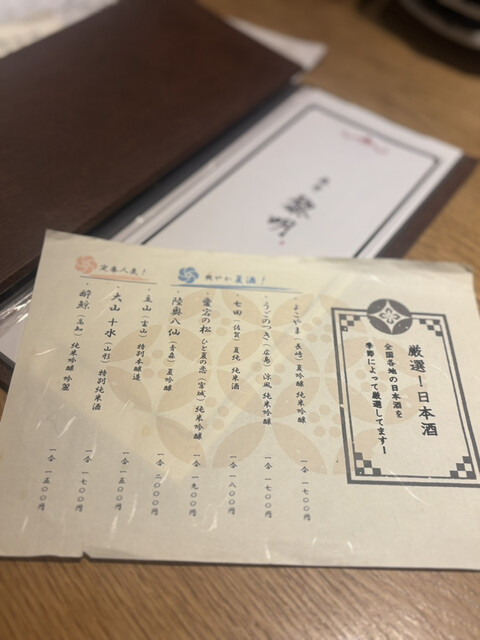 厳選！日本酒
全国各地の日本酒を
季節によって厳選してます！
爽やか夏酒！
・よこやま（長崎）夏吟醸 純米吟醸 一合 一七〇〇円
・うごのつき（広島）涼風 純米吟醸 一合 一七〇〇円
・七田（佐賀）夏純 純米酒 一合 一八〇〇円
・愛宕の松 ひと夏の恋（宮城）純米吟醸 一合 一九〇〇円
・陸奥八仙（青森）夏吟醸 一合 二〇〇〇円
定番人気！
・立山（富山）特別本醸造 一合 一五〇〇円
・大山 十水（山形）特別純米酒 一合 一七〇〇円
・酔鯨（高知）純米吟醸 吟麗 一合 一五〇〇円
黎明